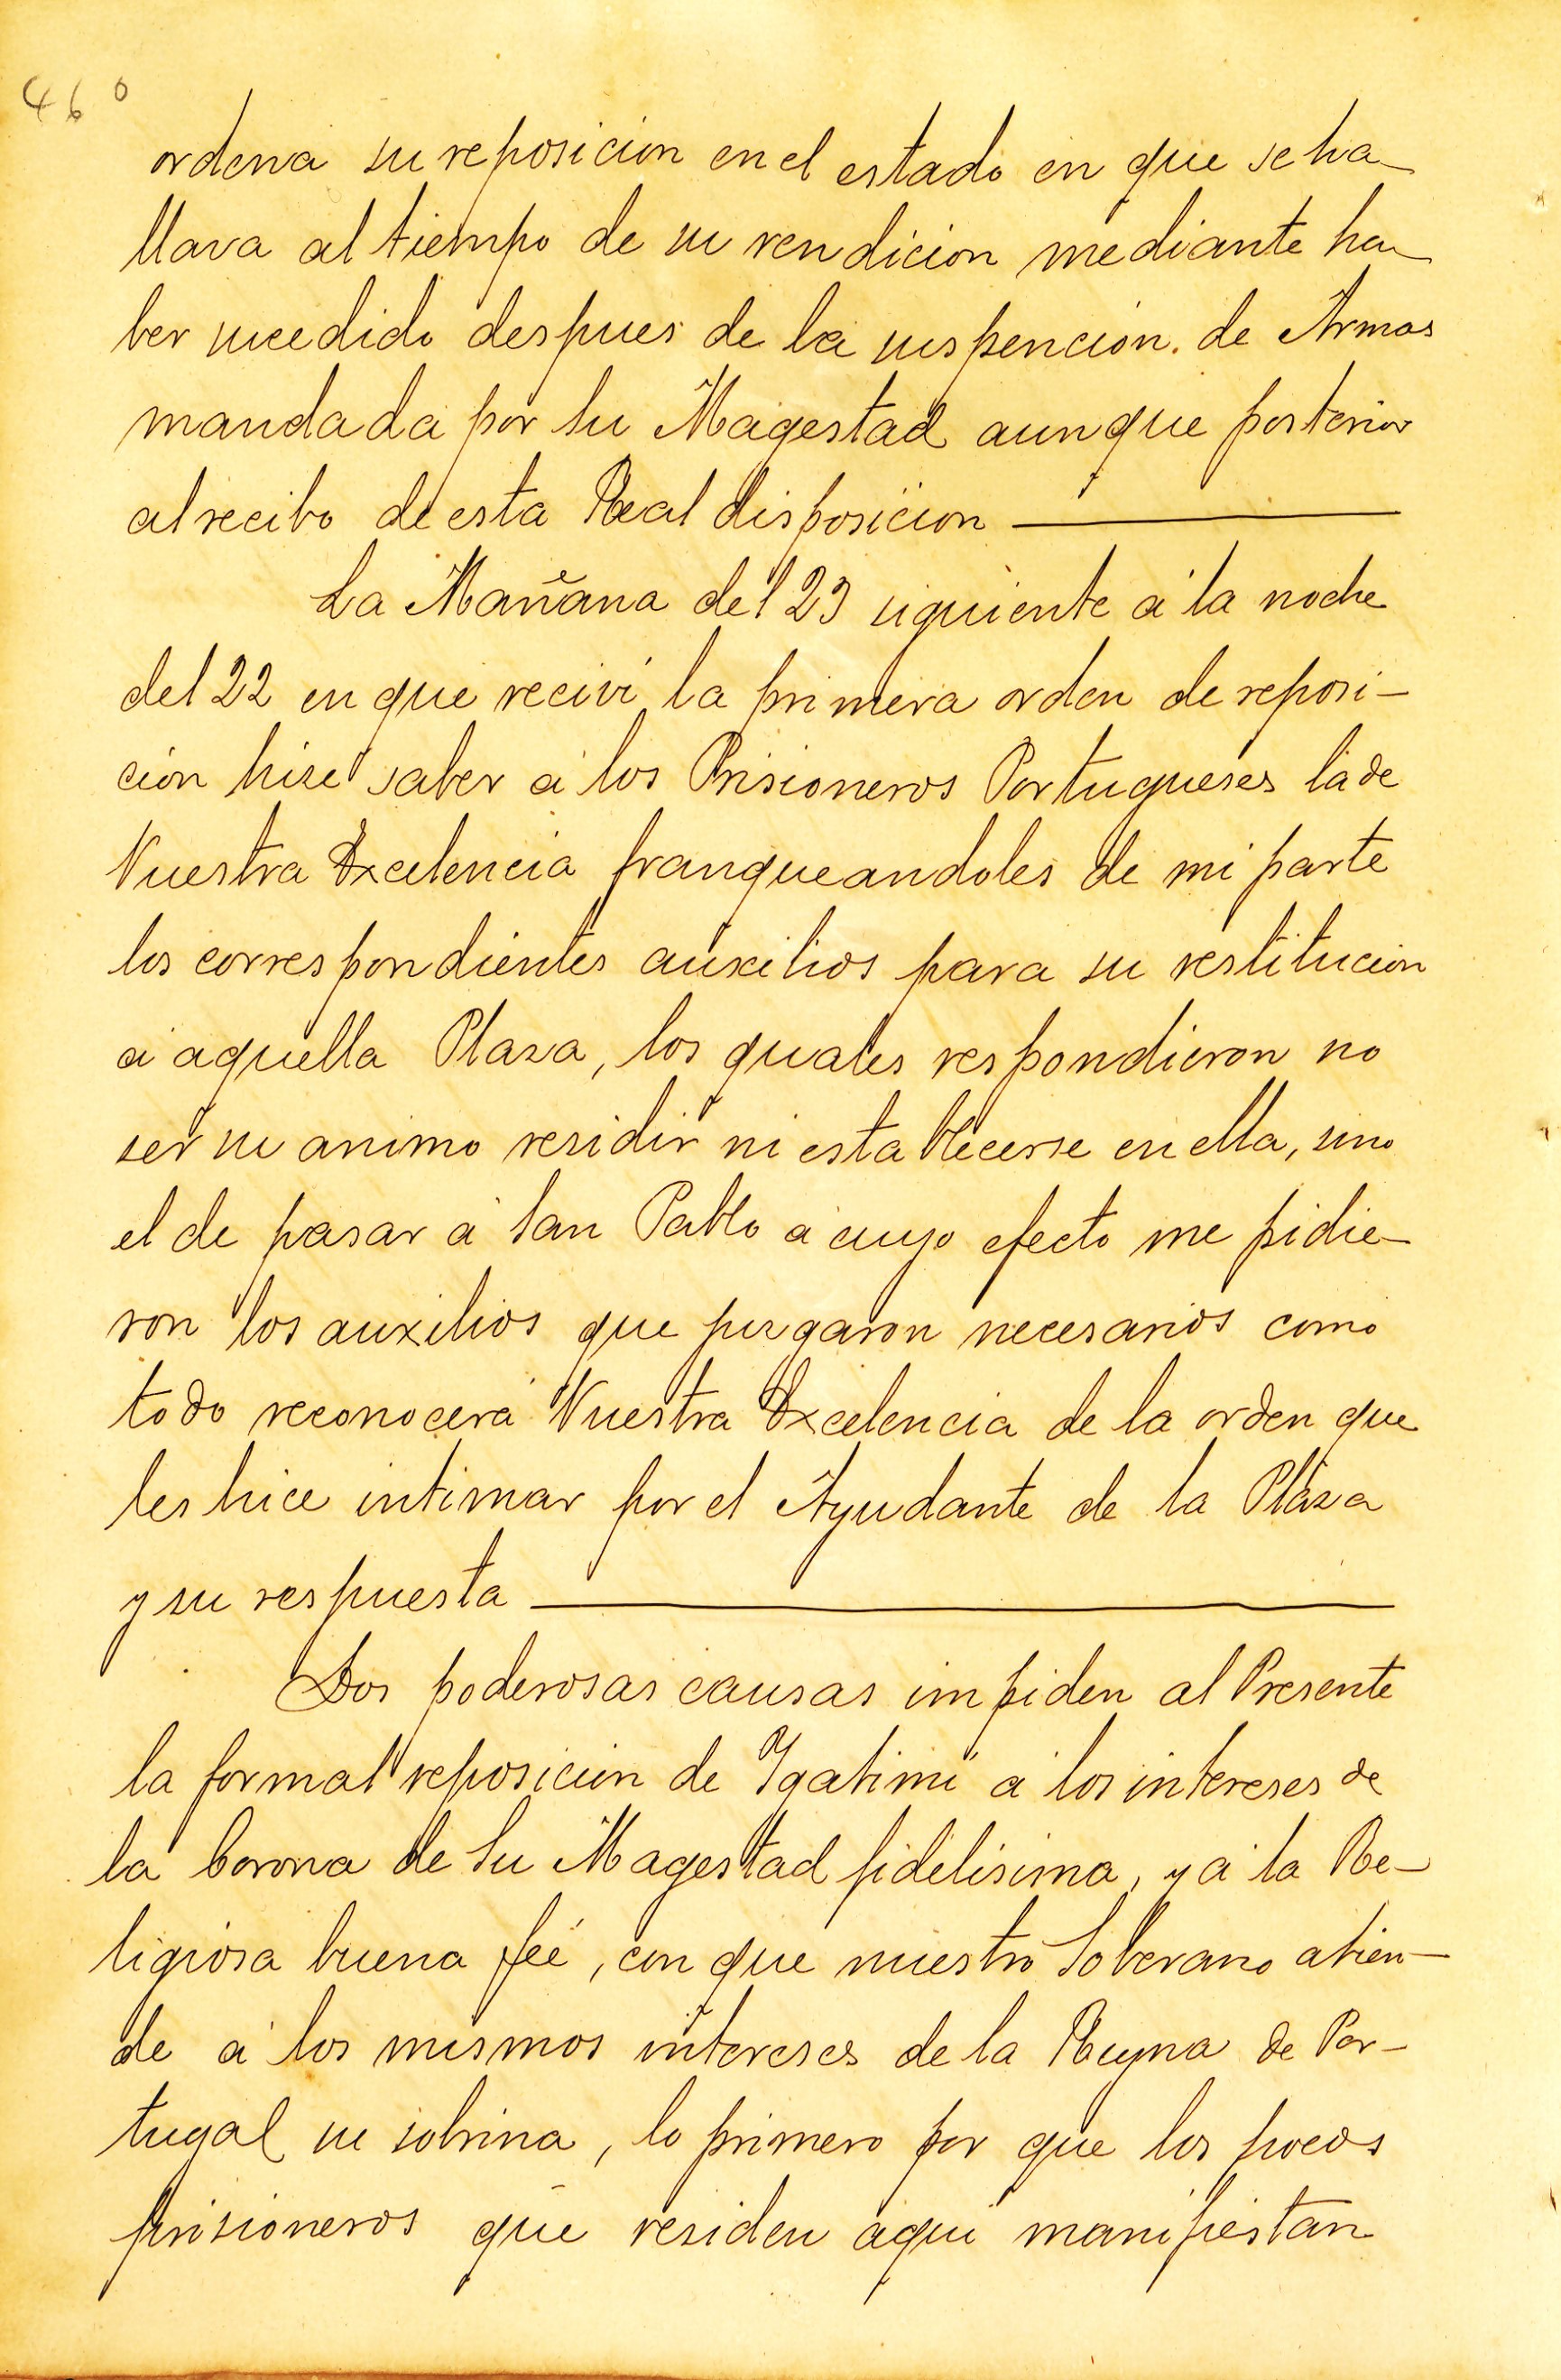 460
ordena su reposicion en el estado en que se ha
llava al tiempo de su rendicion mediante ha
ber sucedido despues de la suspencion. de Armas
mandada por su Magestad aunque posterior
al recibo de esta Real disposicion
La Mañana del 23 siguiente á la noche
del 22 en que recivi la primera orden de reposi-
cion hise saber á los Prisioneros Portugueses la de
Vuestra Excelencia franqueandoles de mi parte
los correspondientes auxilios para su restitucion
á aquella Plaza, los quales respondieron no
ser su animo residir ni establecerse en ella, sino
el de pasar á San Pablo á cuyo efecto me pidie-
ron los auxilios que juzgaron necesarios como
todo reconocerá Vuestra Excelencia de la orden que
les hice intimar por el Ayudante de la Plaza
y su respuesta
Dos poderosas causas impiden al Presente
la formal reposicion de Ygatimi á los intereses de
la Corona de Su Magestad fidelisima, y á la Re-
ligiosa buena feé, con que nuestro Soberano atien-
de á los mismos intereses de la Reyna de Por-
tugal su sobrina, lo primero por que los pocos
prisioneros que residen aqui manifiestan